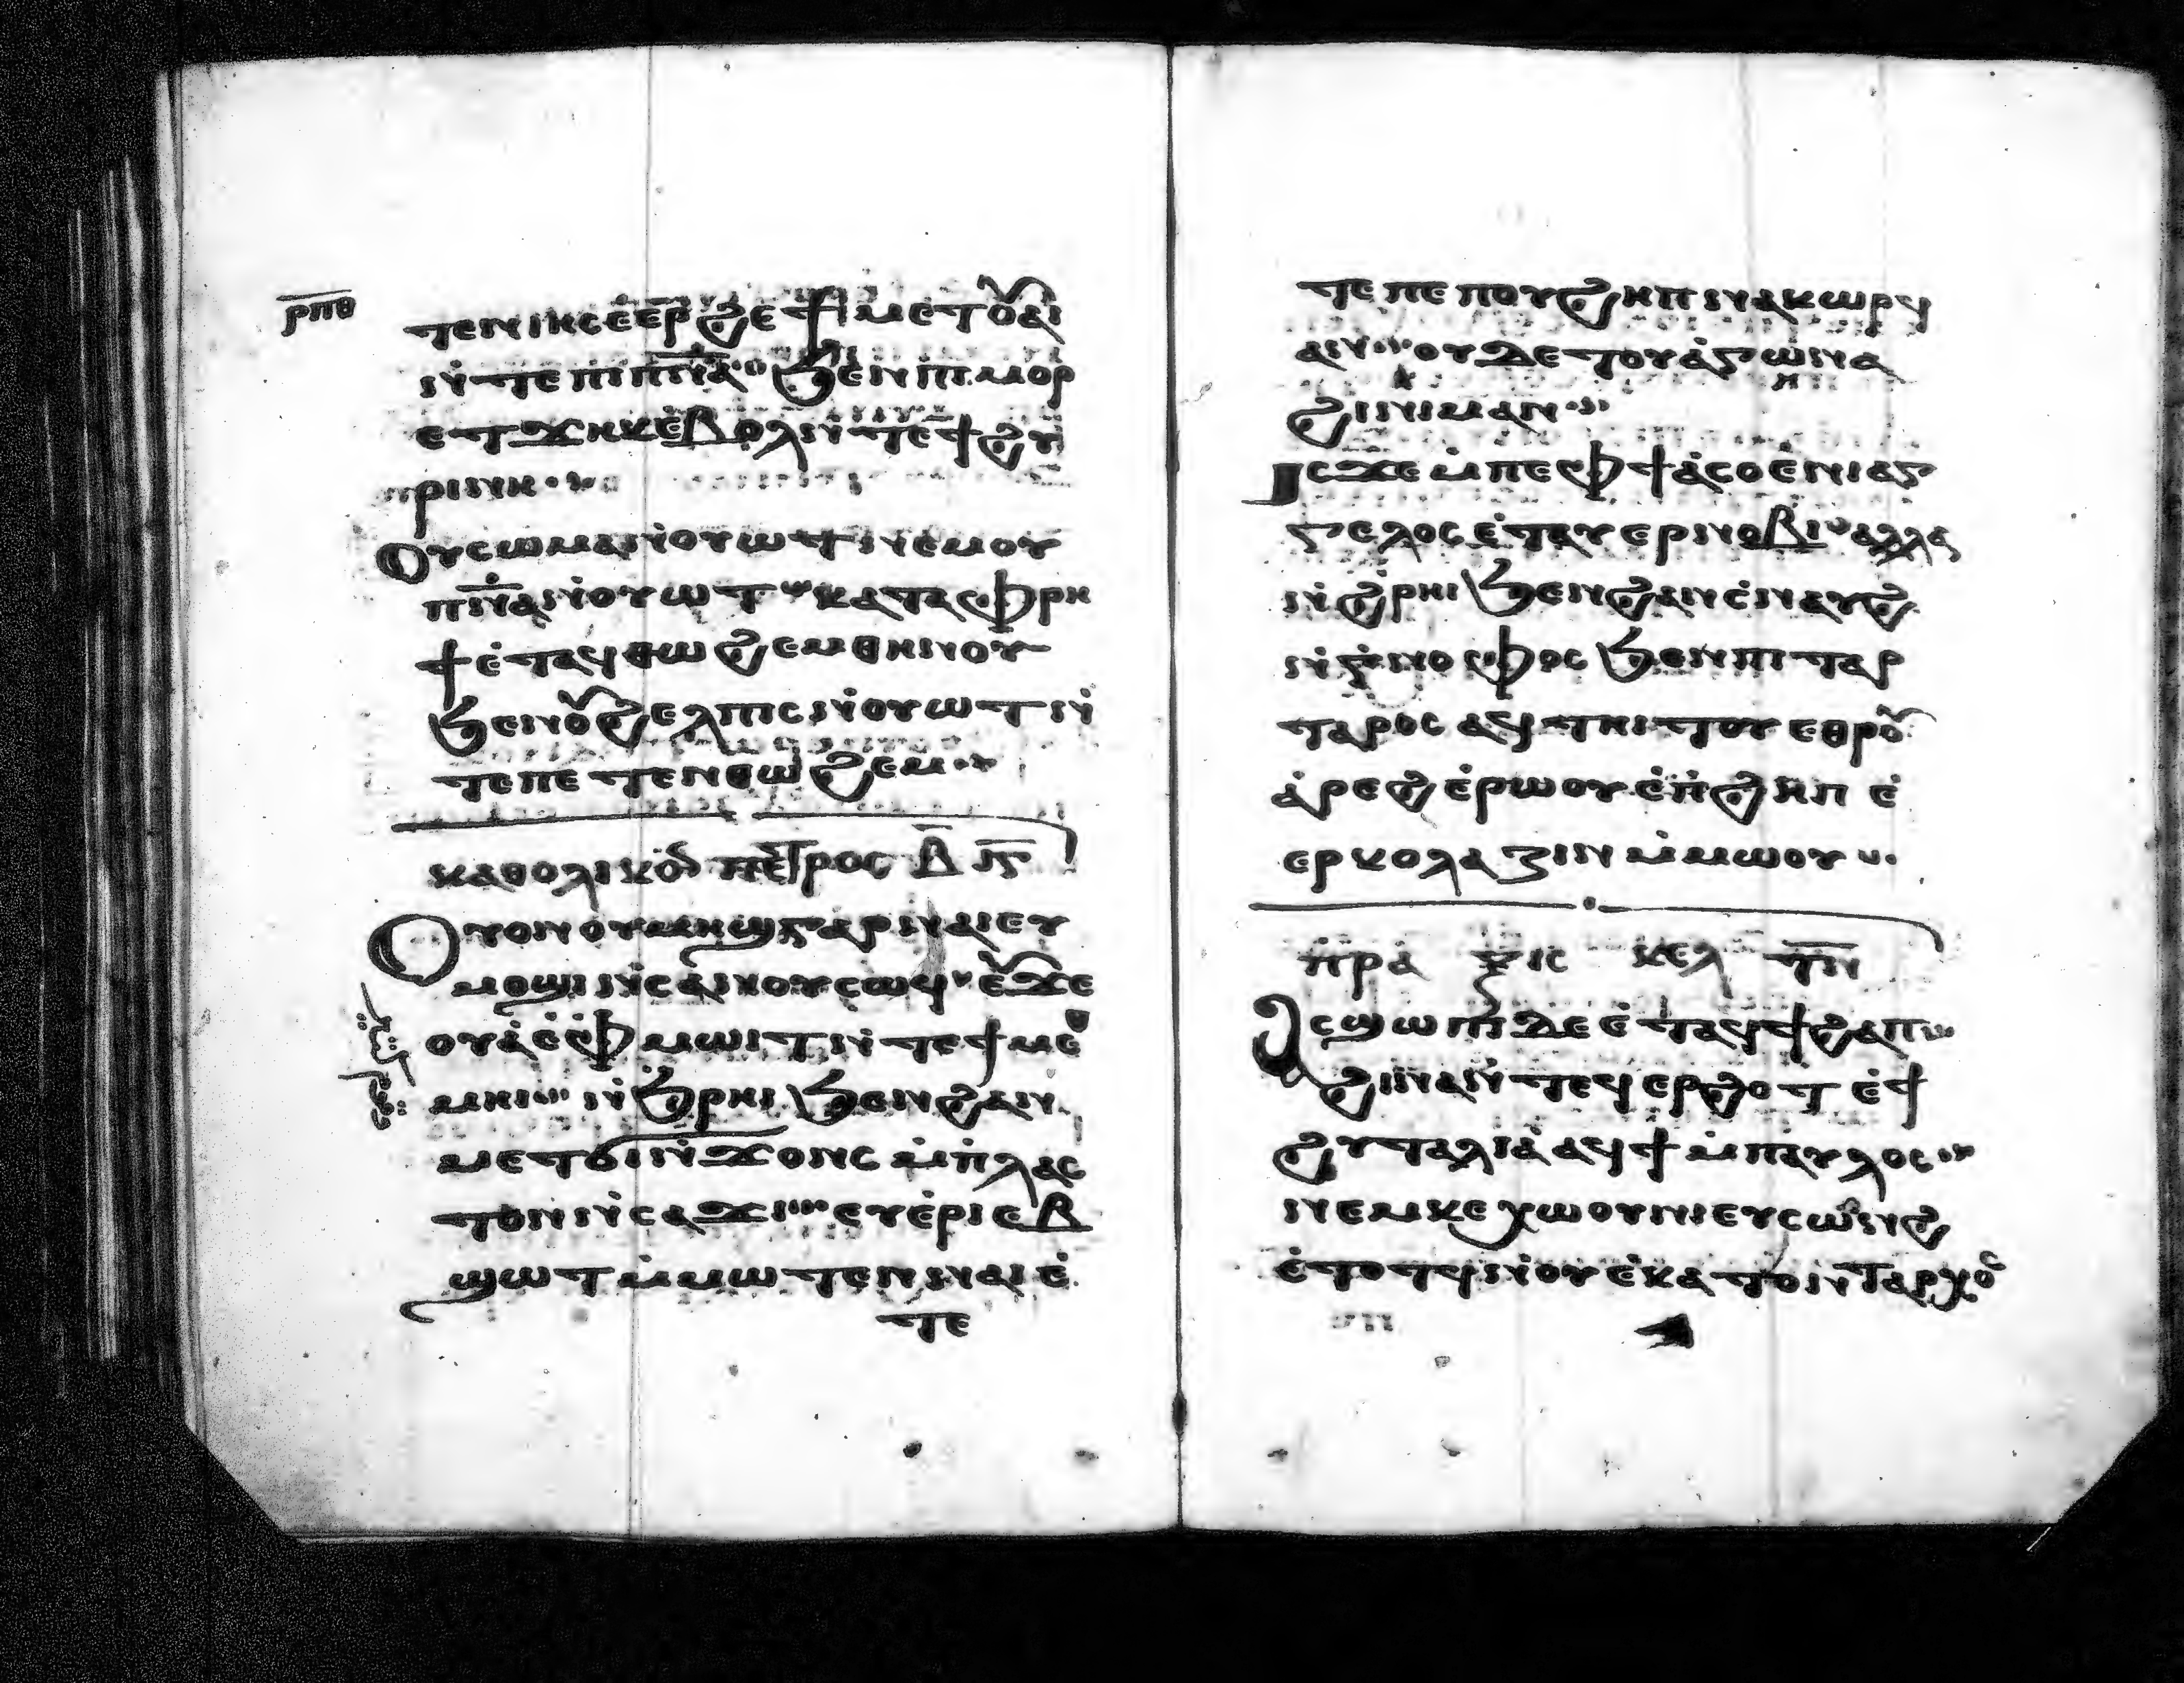 ⲣⲡⲑ
ⲧⲉⲛⲓⲏⲥ ⲉⲉⲣϩⲉ ϯⲙⲉⲧⲟⲩⲁⲓ
ⲛ̇ⲧⲉ ⲡⲓⲡⲛⲁ̅ ϧⲉⲛ ⲡⲓⲙⲟⲣ
ⲉⲧϫⲏⲕ ⲉ̇ⲃⲟⲗ ⲛ̇ⲧⲉ ϯϩⲩ
ⲣⲓⲛⲏ
Ⲟⲩⲥⲱⲙⲁ ⲛ̇ⲟⲩⲱⲧ ⲛⲉⲙ ⲟⲩ
ⲡⲛⲁ̅ ⲛ̇ⲟⲩⲱⲧ ⲕⲁⲧⲁ ⲫⲣⲏ
ϯ ⲉ̇ⲧⲁϥⲑⲱϩⲉⲙ ⲑⲏⲛⲟⲩ
ϧⲉⲛ ⲟⲩϩⲉⲗⲡⲓⲥ ⲛ̇ⲟⲩⲱⲧ ⲛ̇
ⲧⲉ ⲡⲉⲧⲉⲛⲑⲱϩⲉⲙ
ⲕⲁⲑⲟⲗⲓⲕⲟⲛ ⲡⲉⲧⲣⲟⲥ ⲃ̅
Ⲟⲩⲟⲛ ⲟⲩⲙⲏϣ ⲅⲁⲣ ⲛⲁⲓⲉⲩ
ⲙⲟϣⲓ ⲛ̇ⲥⲁ ⲛⲟⲩⲥⲱϥ ⲉ̇ϫⲉ
ⲟⲩⲁ̇ ⲉ̇ⲫⲙⲱⲓⲧ ⲛ̇ⲧⲉ ϯⲙⲉ
ⲙⲏⲓ ⲛ̇ϧⲣⲏⲓ ϧⲉⲛ ϩⲁⲛ
ⲙⲉⲧϭⲓⲛ̇ϫⲟⲛⲥ ⲙ̇ⲡⲗⲁⲥ
ⲧⲟⲛ ⲛ̇ⲥⲁϫⲓ ⲉⲩⲉ̇ⲣⲓⲉⲃ
ϣⲱⲧ ⲙ̇ⲙⲱⲧⲉⲛ ⲛⲁⲓ ⲉ̇
ⲧⲉ
ⲧⲉ ⲡⲉ ⲡⲟⲩϩⲏⲡ ⲛⲁⲕⲱⲣϥ
ⲁⲛ ⲟⲩⲇⲉ ⲡⲟⲩⲁ̇ⲅⲱⲛⲓⲁ
ϩⲓⲛⲓⲙ ⲁⲛ
Ⲓⲥϫⲉ ⲙ̇ⲡⲉ ⲫϯ ⲁ̇ⲥⲟ ⲉ̇ⲛⲓⲁⲅ
ⲅⲉⲗⲟⲥ ⲉ̇ⲧⲁⲩⲉⲣⲛⲟⲃⲓ ⲁⲗⲗⲁ
ⲛ̇ϩⲣⲏⲓ ϧⲉⲛ ϩⲁⲛⲥⲛⲁⲩϩ
ⲛ̇ⲅⲛⲟⲫⲟⲥ ϧⲉⲛ ⲡⲓⲧⲁⲣ
ⲧⲁⲣⲟⲥ ⲁϥⲧⲏⲓⲧⲟⲩ ⲉⲑⲣⲟⲩ
ⲁ̇ⲣⲉϩ ⲉ̇ⲣⲱⲟⲩ ⲉ̇ⲡϩⲏⲡ ⲉ̇
ⲉⲣⲕⲟⲗⲁⲍⲓⲛ ⲙ̇ⲙⲱⲟⲩ
ⲡⲣⲁⲝⲓⲥ ⲕⲉⲫ
Ⲁⲥϣⲱⲡⲓ ⲇⲉ ⲉ̇ⲧⲁϥϯϩⲁⲡ
ϩⲓⲛⲁ ⲛ̇ⲧⲉϥⲉⲣϩⲱⲧ ⲉ̇ϯ
ϩⲩⲧⲁⲗⲓⲁ̇ ⲁϥϯ ⲙ̇ⲡⲁⲩⲗⲟⲥ
ⲛⲉⲙ ⲕⲉⲭⲱⲟⲩⲛⲓ ⲉⲩⲥⲱⲛϩ
ⲉ̇ⲧⲟⲧϥ ⲛ̇ⲟⲩⲉⲕⲁⲧⲟⲛⲧⲁⲣⲭⲟⲥ